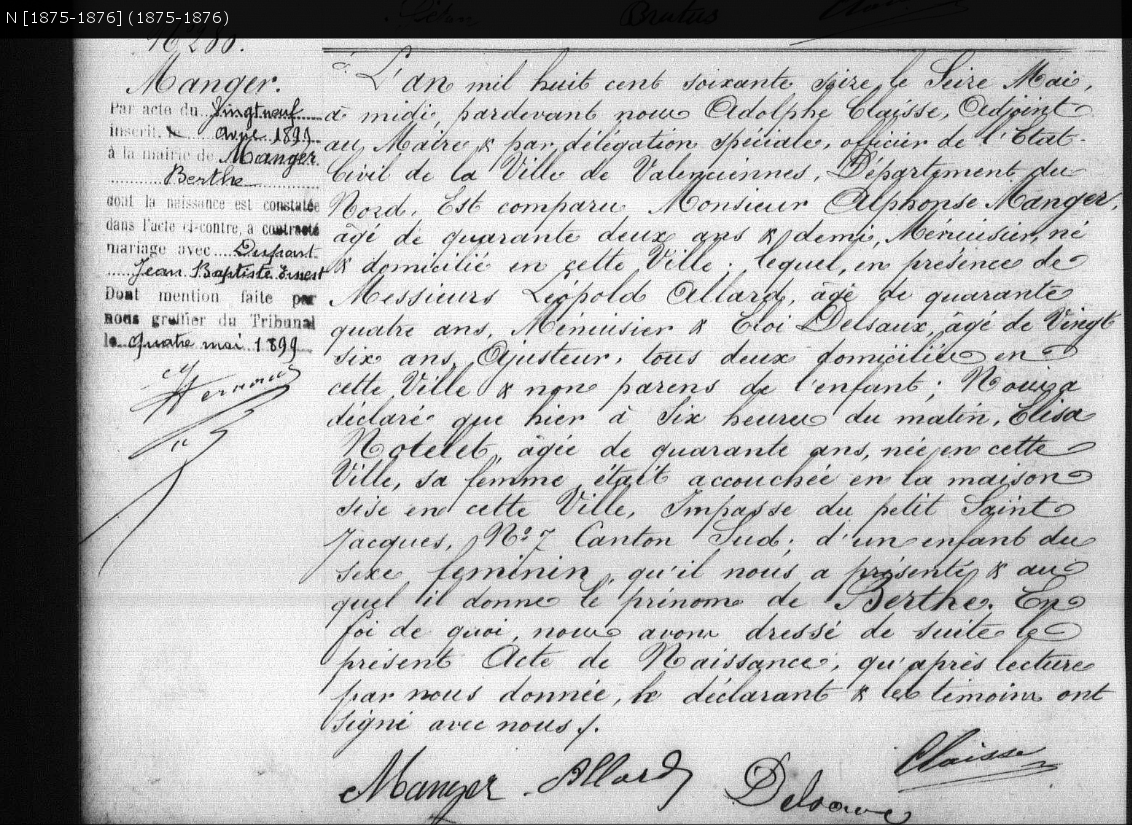 N [1875-1876] (1875-1876)
Brutus
Nº 280.
Manger.
Par acte du Vingt neuf
inscrit. avril 1899
à la mairie de Manger
Berthe
dont la naissance est constatée
dans l'acte ci-contre, a contracté
mariage avec Dupart
Jean Baptiste Ernest
Dont mention faite par
nous greffier du Tribunal
le quatre mai 1899
L'an mil huit cent soixante seize le Seize Mai,
à midi, pardevant nous Adolphe Claisse, Adjoint
au Maire & par délégation spéciale, officier de l'Etat-
Civil de la Ville de Valenciennes, Département du
Nord, Est comparu Monsieur Alphonse Manger,
âgé de quarante deux ans & demi, Menuisier, né
& domicilié en cette Ville; lequel, en présence de
Messieurs Léopold Allard, âgé de quarante
quatre ans, Menuisier & Eloi Delsaux, âgé de Vingt
six ans, Ajusteur, tous deux domiciliés en
cette Ville & non parens de l'enfant; Nous a
déclaré que hier à Six heures du matin, Elisa
Notelet, âgée de quarante ans, née en cette
Ville, sa femme, était accouchée en la maison
sise en cette Ville, Impasse du petit Saint
Jacques, Nº 7 Canton Sud; d'un enfant du
sexe féminin, qu'il nous a présenté & au
quel il donne le prénom de Berthe. En
foi de quoi, nous avons dressé de suite le
présent Acte de Naissance, qu'après lecture
par nous donnée, le déclarant & les témoins ont
signé avec nous /.
Manger Allard Delsaux Claisse